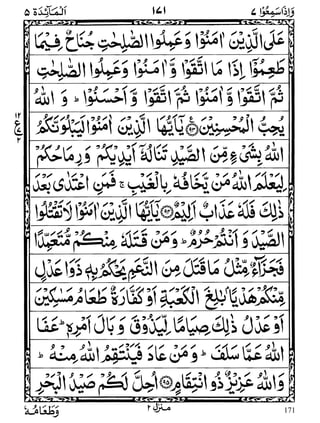 وَاِذَاسَمِعُوْا ۷ ۱۷۱ اَلْمَآئِدَة ۵
عَلَى الَّذِيْنَ اٰمَنُوْا وَعَمِلُوا الصّٰلِحٰتِ جُنَاحٌ فِيْمَا
طَعِمُوْۤا اِذَا مَا اتَّقَوْا وَّاٰمَنُوْا وَعَمِلُوا الصّٰلِحٰتِ
ثُمَّ اتَّقَوْا وَّاٰمَنُوْا ثُمَّ اتَّقَوْا وَّاَحْسَنُوْا ؕ وَاللّٰهُ
يُحِبُّ الْمُحْسِنِيْنَ ﴿۹۳﴾ يٰۤاَيُّهَا الَّذِيْنَ اٰمَنُوْا لَيَبْلُوَنَّكُمُ
اللّٰهُ بِشَيْءٍ مِّنَ الصَّيْدِ تَنَالُهٗۤ اَيْدِيْكُمْ وَرِمَاحُكُمْ
لِيَعْلَمَ اللّٰهُ مَنْ يَّخَافُهٗ بِالْغَيْبِ ۚ فَمَنِ اعْتَدٰى بَعْدَ
ذٰلِكَ فَلَهٗ عَذَابٌ اَلِيْمٌ ﴿۹۴﴾ يٰۤاَيُّهَا الَّذِيْنَ اٰمَنُوْا لَا تَقْتُلُوا
الصَّيْدَ وَاَنْتُمْ حُرُمٌ ؕ وَمَنْ قَتَلَهٗ مِنْكُمْ مُّتَعَمِّدًا
فَجَزَآءٌ مِّثْلُ مَا قَتَلَ مِنَ النَّعَمِ يَحْكُمُ بِهٖ ذَوَا عَدْلٍ
مِّنْكُمْ هَدْيًۢا بٰلِغَ الْكَعْبَةِ اَوْ كَفَّارَةٌ طَعَامُ مَسٰكِيْنَ
اَوْ عَدْلُ ذٰلِكَ صِيَامًا لِّيَذُوْقَ وَبَالَ اَمْرِهٖ ؕ عَفَا
اللّٰهُ عَمَّا سَلَفَ ؕ وَمَنْ عَادَ فَيَنْتَقِمُ اللّٰهُ مِنْهُ ؕ
وَاللّٰهُ عَزِيْزٌ ذُو انْتِقَامٍ ﴿۹۵﴾ اُحِلَّ لَكُمْ صَيْدُ الْبَحْرِ
وَطَعَامُهٗ منزل ۲ 171